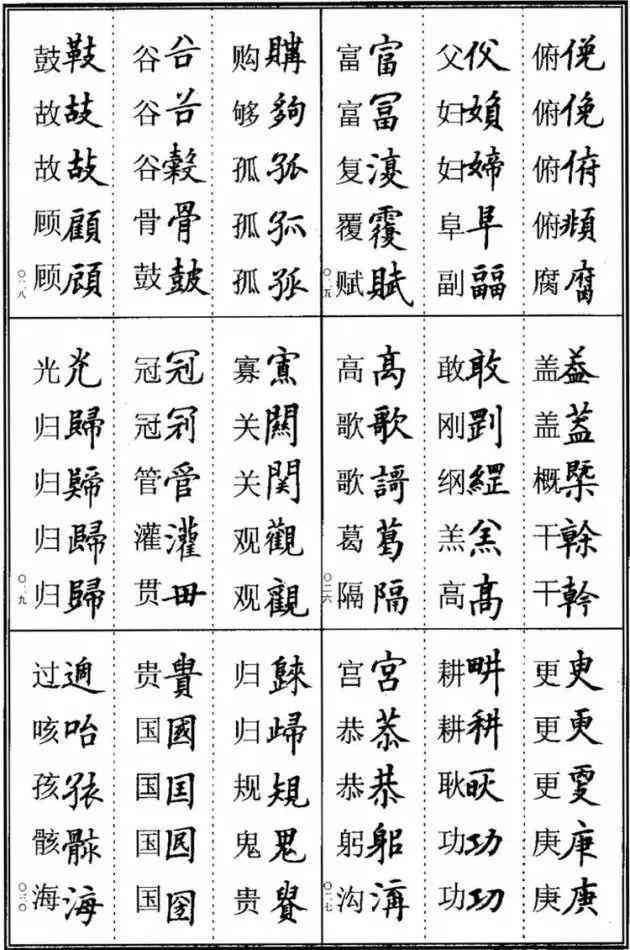 俯俛 俯俛 俯俯 俯頫 腐腐
父 妇媍 妇 阜阜 副
富富 富冨 复 覆覆 赋賦
〇二五
盖益 盖蓋 概槩 干榦 干幹
敢敢 刚 纲 羔羔 高高
高高 歌歌 歌謌 葛葛 隔隔
〇二六
更更 更更 更 庚庚 庚庚
耕畊 耕耕 耿 功功 功㓛
宫宮 恭恭 恭恭 躬躳 沟
〇二七
购購 够夠 孤孤 孤孤 孤孤
谷谷 谷 谷穀 骨骨 鼓皷
鼓 故故 故故 顾顧 顾
〇二八
寡 关關 关関 观觀 观觀
冠冠 冠 管管 灌灌 贯毌
光炛 归歸 归 归 归歸
〇二九
归 归 规規 鬼鬼 贵
贵貴 国國 国囯 国 国圀
过過 咳咍 孩孩 骸骸 海海
〇三〇